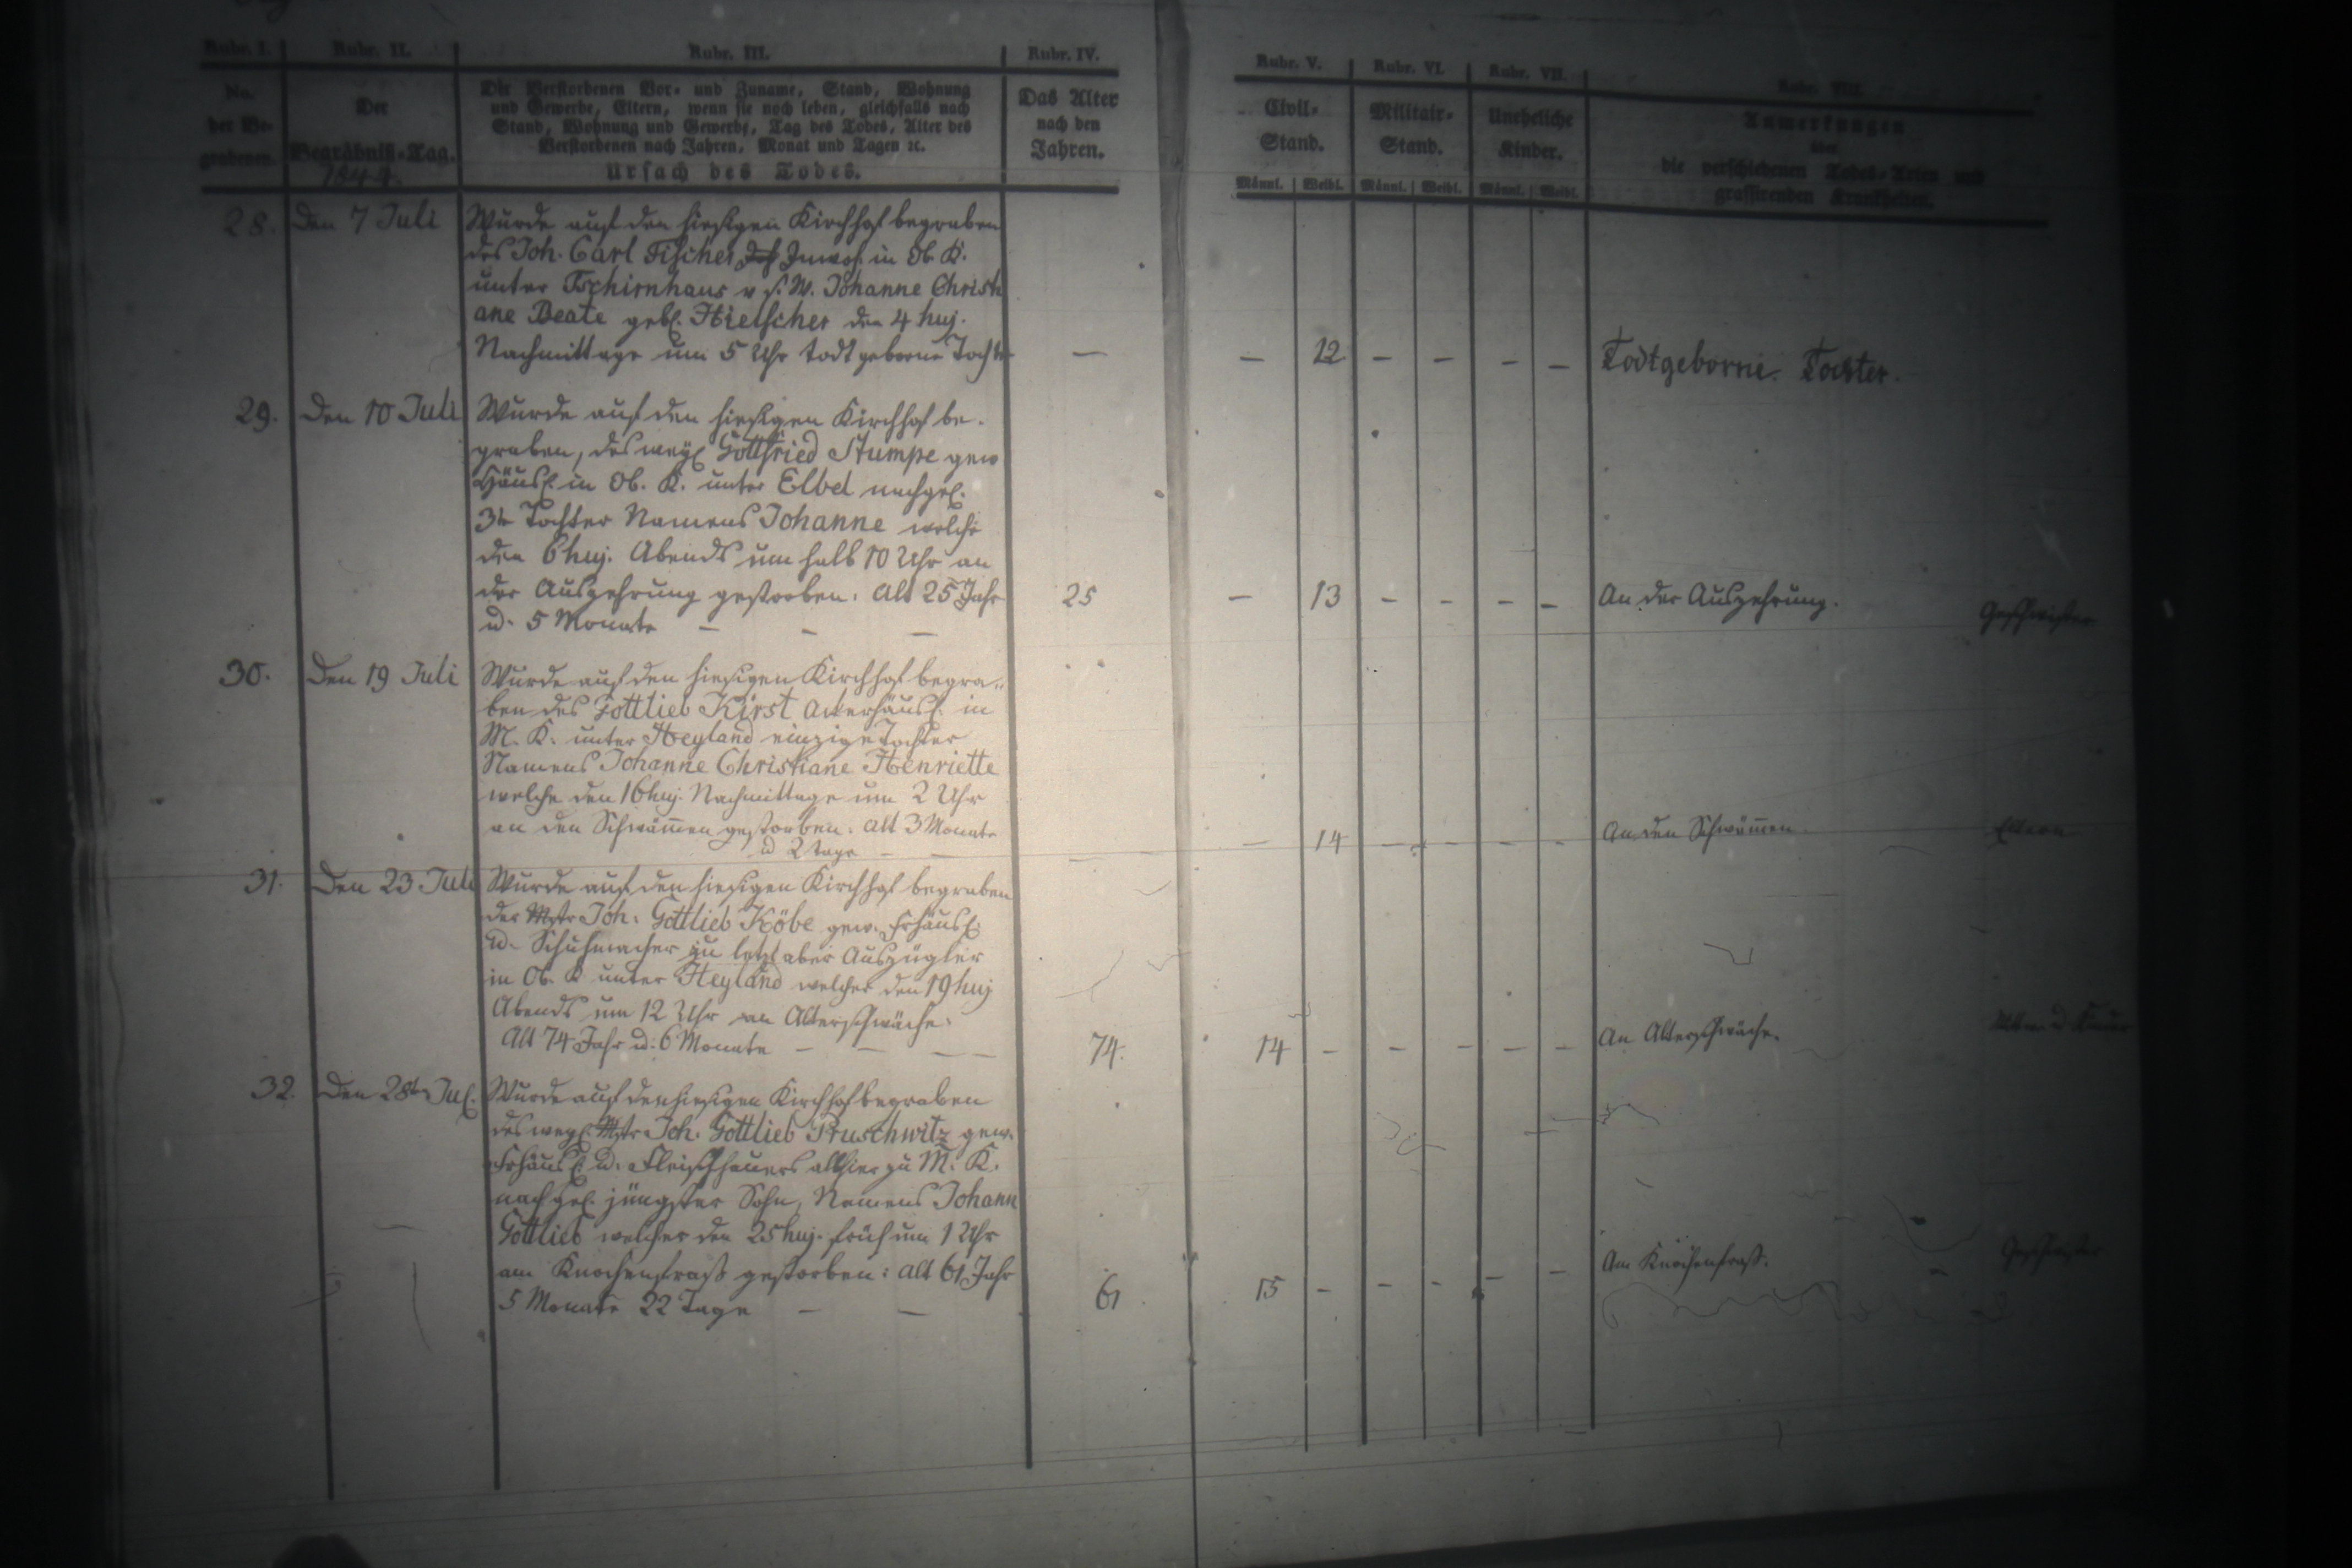 Rubr. I. Rubr. II. Rubr. III. Rubr. IV. Rubr. V. Rubr. VI. Rubr. VII. Rubr. VIII.
No. der Be- grabenen.
Der Begräbniß-Tag.
1844.
Der Verstorbenen Vor- und Zuname, Stand, Wohnung
und Gewerbe, Eltern, wenn sie noch leben, gleichfalls nach
Stand, Wohnung und Gewerbe, Tag des Todes, Alter des
Verstorbenen nach Jahren, Monat und Tagen ꝛc.
Ursach des Todes.
Das Alter
nach den
Jahren.
Civil-
Stand.
Militair-
Stand.
Uneheliche
Kinder.
Männl. Weibl. Männl. Weibl. Männl. Weibl.
Anmerkungen
über
die verschiedenen Todes-Arten und
grassirenden Krankheiten.
28. Den 7 Juli Wurde auf den hiesigen Kirchhof begraben
des Joh. Carl Fischer Inwoh. in Ob. K.
unter Tschirnhaus u s. W. Johanne Christi
ane Beate geb. Hielscher den 4 huj.
Nachmittage um 5 Uhr todt geborne Tochter — — 12 — — — — Todtgeborne Tochter.
29. Den 10 Juli Wurde auf den hiesigen Kirchhof be-
graben, des weyl Gottfried Stumpe gew
Häusl. in Ob. K. unter Elbel nachgel.
3te Tochter Namens Johanne welche
den 6 huj. Abends um halb 10 Uhr an
der Auszehrung gestorben: Alt 25 Jahr 25 — 13 — — — — An der Auszehrung. Geschwister
u. 5 Monate — — —
30. Den 19 Juli Wurde auf den hiesigen Kirchhof begra-
ben des Gottlieb Kirst Ackerhäusl. in
M. K. unter Heyland einzige Tochter
Namens Johanne Christiane Henriette
welche den 16 huj. Nachmittage um 2 Uhr
an den Schwämen gestorben: Alt 3 Monate
u 2 Tage — — — — 14 — — — — An den Schwämen. Eltern
31. Den 23 Juli Wurde auf den hiesigen Kirchhof begraben
der Mstr Joh: Gottlieb Köbe gew. Frhäusl.
u. Schuhmacher zu letzt aber Auszügler
in Ob. K unter Heyland welcher den 19 huj
Abends um 12 Uhr an Altersschwäche.
Alt 74 Jahr u. 6 Monate — — — — 74. 14 — — — — — An Altersschwäche.
32. Den 28ten Jul. Wurde auf den hiesigen Kirchhof begraben
des weyl. Mstr Joh. Gottlieb Pruschwitz gew.
Frhäusl. u. Fleischhauers allhier zu M. K.
nachgel. jüngster Sohn, Namens Johann
Gottlieb welcher den 25 huj. früh um 1 Uhr
am Knochenfraß gestorben: Alt 61 Jahr
5 Monate 22 Tage — — 61 15 — — — — — Am Knochenfraß. Geschwister